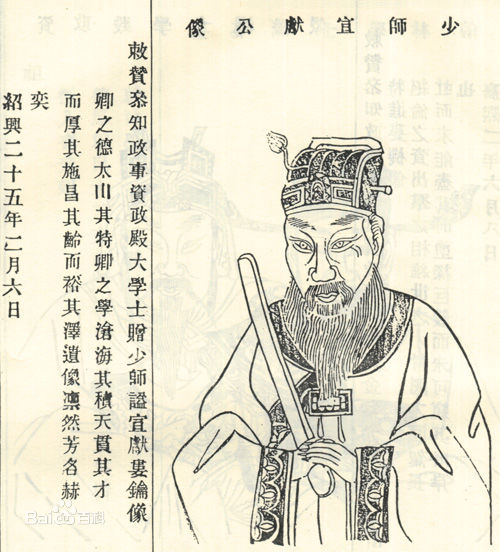 少師宣獻公像
敕贊叅知政事資政殿大學士贈少師謚宣獻婁鑰像
卿之德太山其特卿之學滄海其積天貫其才
而厚其施昌其齡而裕其澤遺像凜然芳名赫
奕
紹興二十五年二月六日
Bai du 百科